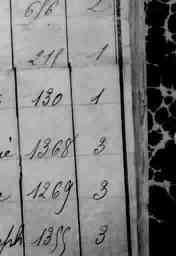 616 2
211 1
130 1
ie 1368 3
e 1269 3
eph 1355 3